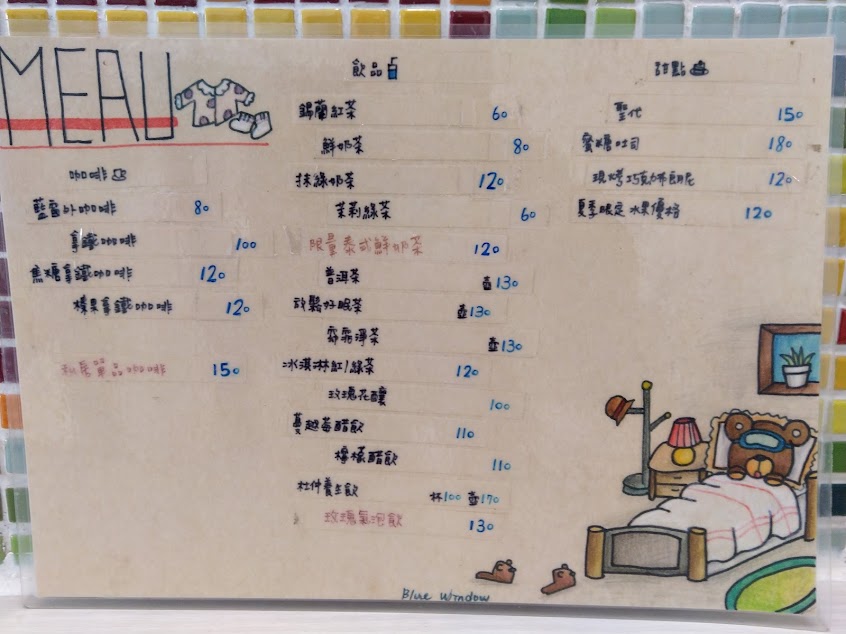 MENU
咖啡
藍窗の咖啡 80
拿鐵咖啡 100
焦糖拿鐵咖啡 120
榛果拿鐵咖啡 120
單品咖啡 150
飲品
錫蘭紅茶 60
鮮奶茶 80
抹綠奶茶 120
茉莉綠茶 60
限量泰式鮮奶茶 120
普洱茶 壺130
放鬆好眠茶 壺130
淨茶 壺130
冰淇淋紅/綠茶 120
玫瑰花釀 100
蔓越莓醋飲 110
檸檬醋飲 110
杜仲養生飲 杯100 壺170
玫瑰氣泡飲 130
甜點
聖代 150
蜜糖吐司 180
現烤巧克力布朗尼 120
夏季限定 水果優格 120
Blue Window